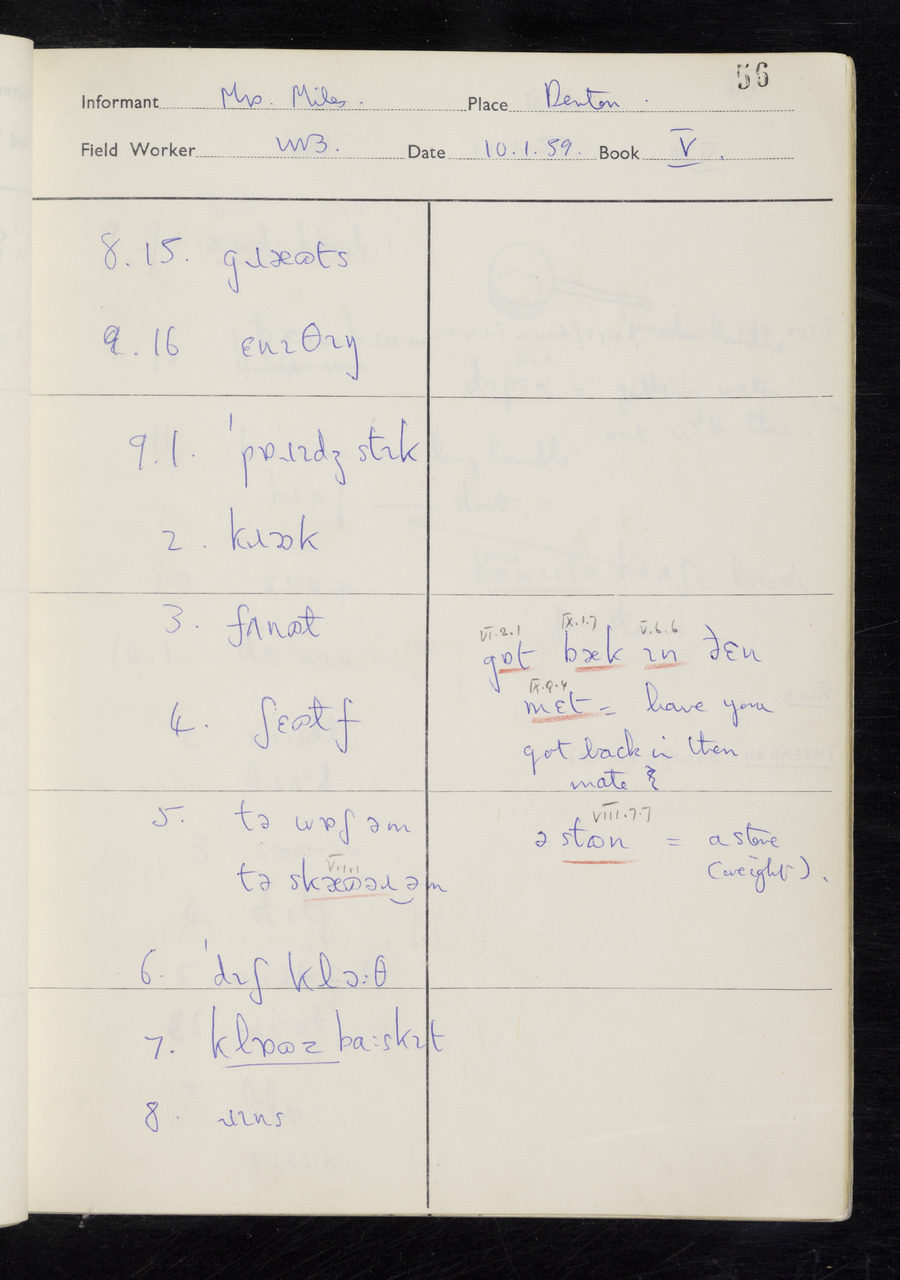 56
Informant Mrs. Miles. Place Denton.
Field Worker WVB. Date 10.1.59. Book V.
8.15. gɹæɷts
9.16 ɛnɪθɪŋ
9.1. ˈpɒɹɪdʒ stɪk
2. kɹɒk
3. fʌnɷt
4. ʃɛɷtf
5. tə wɒʃ əm
V.1.11
tə skæɷəɹ‿əm
6. ˈdɪʃ klɔ:θ
7. klɒɷz ba:skɪt
8. ɹɪns
VI.2.1 IX.1.7 V.6.6
gɒt bæk ɪn ðɛn
IX.9.4
mɛt = have you
got back in then
mate?
VIII.7.7
ə stɷn = a stone
(weight).